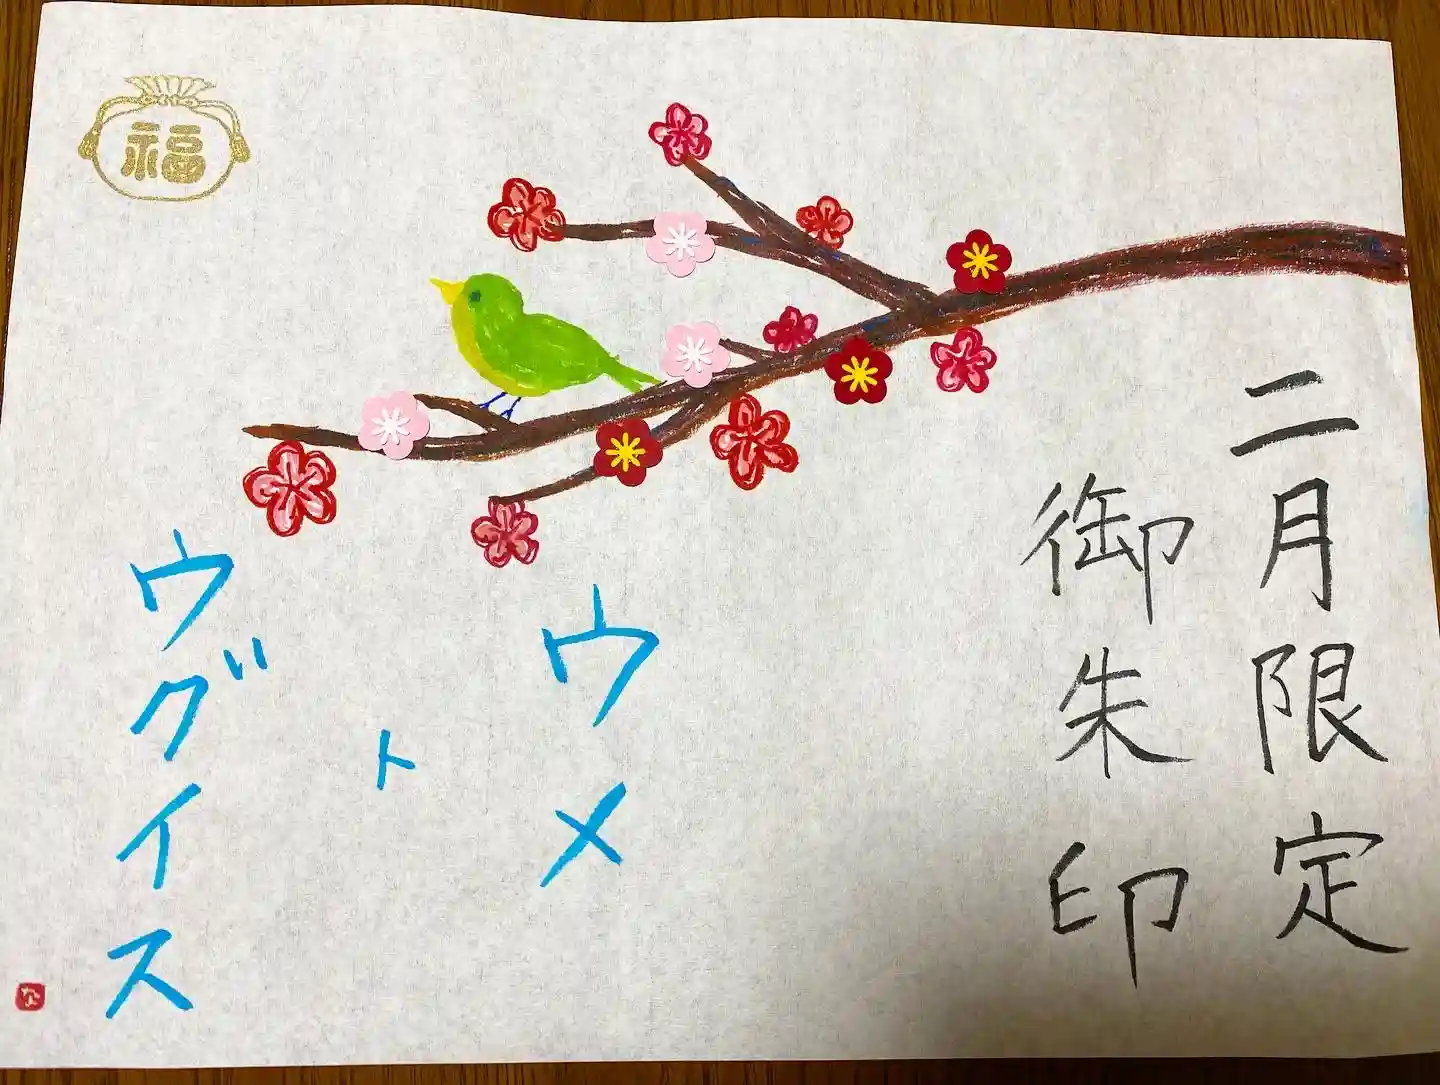 二月限定
御朱印
ウメ
ト
ウグイス
福
な